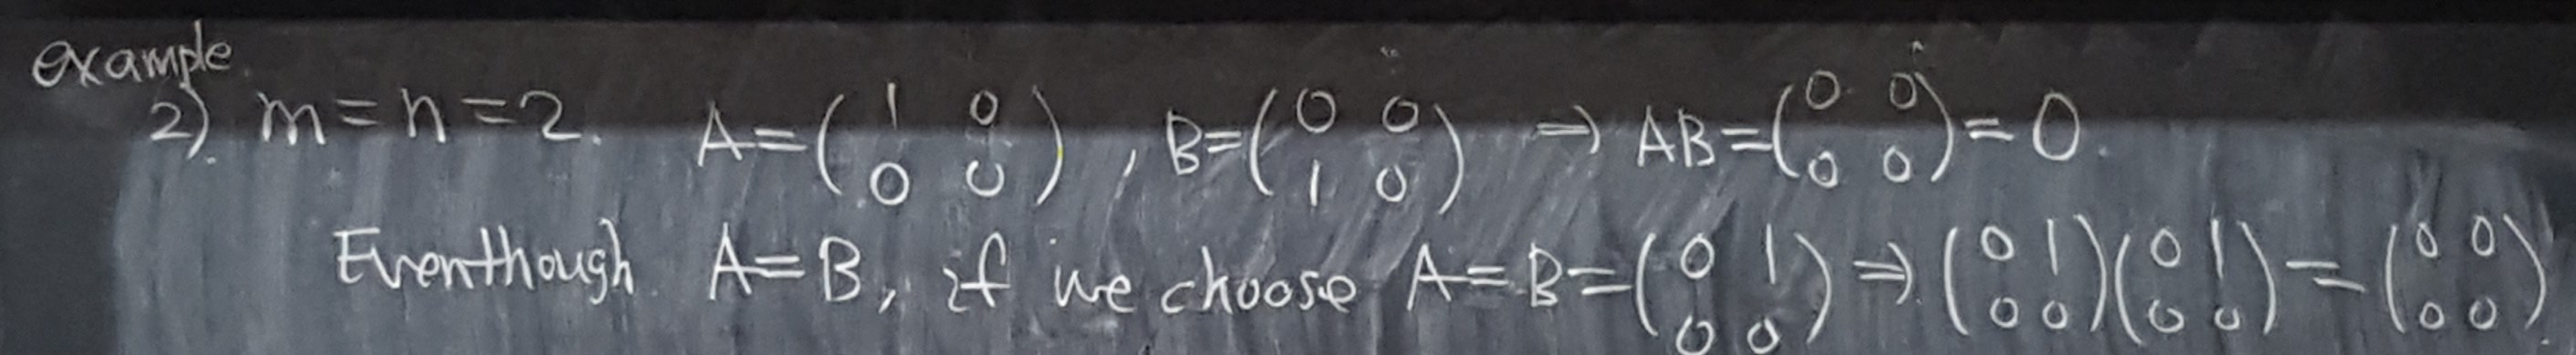 example.
2). m=n=2. A=(1 0; 0 0), B=(0 0; 1 0) ⇒ AB=(0 0; 0 0)=0.
Eventhough A=B, if we choose A=B=(0 1; 0 0) ⇒ (0 1; 0 0)(0 1; 0 0)=(0 0; 0 0).